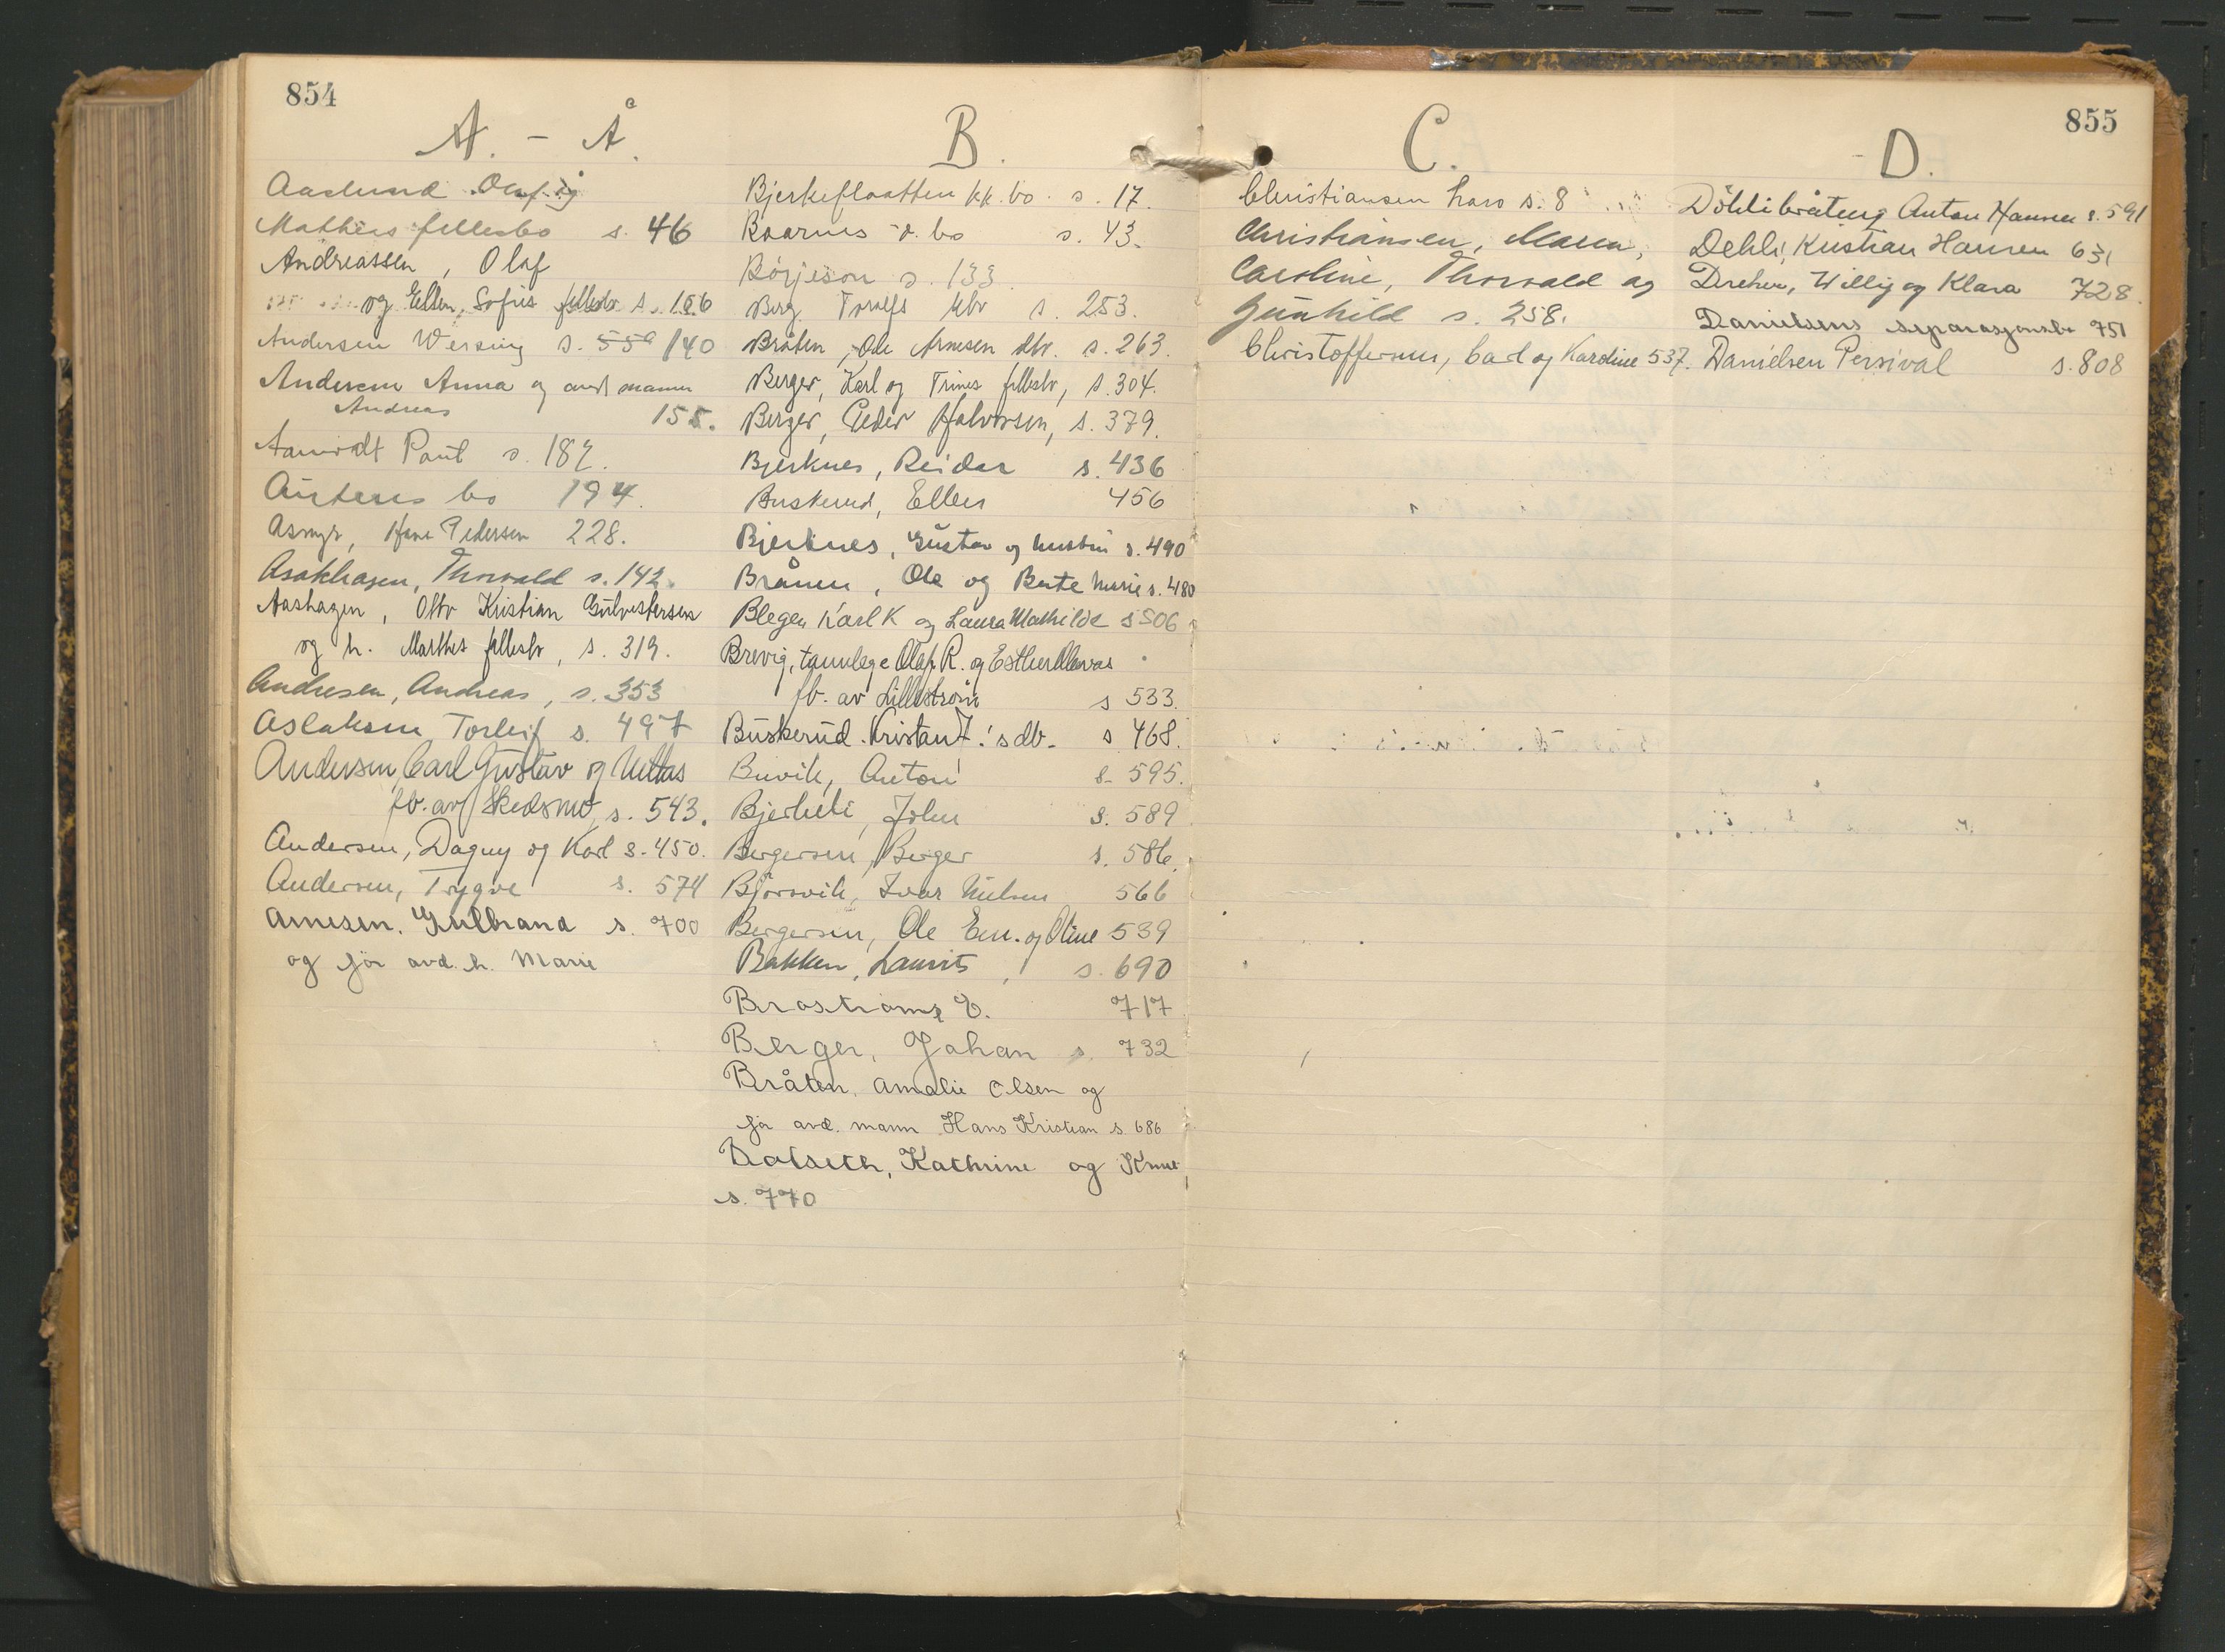 854
A. - Å.
Aaslund Olaf og
Mathias fellesbo s. 46
Andreassen, Olaf
og Ellen Sofies fellesbo s. 186
Andersen Wersing s. 550 140
Andersen Anna og avd mann
Andreas 155.
Paul s. 187.
bo 194.
Asmyr, Hans Pedersen 228.
Asakhagen, Thorvald s. 142.
Aashagen, Otto Kristian Gulvestersen
og h. Marthes fellesbo, s. 319.
Andresen, Andreas, s. 353
Aslaksen Torleif s. 497
Andersen, Carl Gustav og Uttas
fb. av Skedsmo, s. 543.
Andersen, Dagny og Karl s. 450.
Andersen, Trygve s. 574
Arnesen. Gulbrand s. 700
og før avd. h. Marie
B.
Bjerkeflaatten kk. bo. s. 17.
Baarnes d. bo s. 43.
Börjeson s. 133.
Berg Toralfs kbo s. 253.
Bråten, Ole Arnesen dbo. s. 263.
Berger, Karl og Trines fellesbo, s. 304.
Berger, Peder Halvorsen, s. 379.
Bjerknes, Reidar s. 436
Buskerud, Ellen 456
Bjerknes, Gustav og hustru s. 490
Brånen, Ole og Berte Marie s. 480
Blegen Karl K og Laura Mathilde s 506
Brevig, tannlege Olaf R. og Esther Olevas
fb. av Lillestrøm s 533.
Buskerud. Kristan J.'s db. s 468.
Buvik, Anton s. 595.
Bjerkeli, John s. 589
Bergersen, Birger s. 586.
Bjørsvik, Ivar Nielsen 566
Bergersen, Ole Em. og Oline 539
Bakken, Laurits, s. 690
Brostrøms, E. 717
Berger, Johan s. 732
Bråten. Amalie Olsen og
før avd. mann Hans Kristian s. 686
Bolseth, Kathrine og Knut
s. 770
C.
Christiansen Lars s. 8
Christiansen, Maren,
Caroline, Thorvald og
Gunhild s. 258.
Christoffersen, Carl og Karoline 537.
855
D.
Döhlibråteng Anton Hansen s. 591
Dehli, Kristian Hansen 631
Dreher, Willy og Klara 728.
Danielsens separasjonsbo 751
Danielsen Persival s. 808